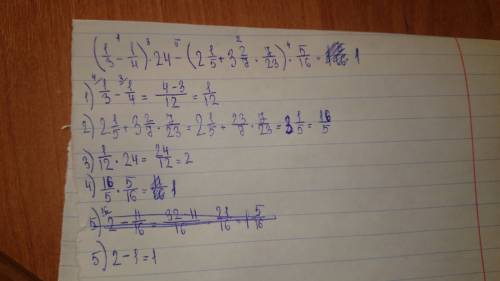 (1/3 - 1/4) · 24 - (2 1/5 + 3 2/7 · 7/23) · 5/16 = 1
1) 1/3 - 1/4 = (4-3)/12 = 1/12
2) 2 1/5 + 3 2/7 · 7/23 = 2 1/5 + 23/7 · 7/23 = 3 1/5 = 16/5
3) 1/12 · 24 = 24/12 = 2
4) 16/5 · 5/16 = 1
5) 2 - 11/16 = (32-11)/16 = 21/16 = 1 5/16
5) 2-1=1